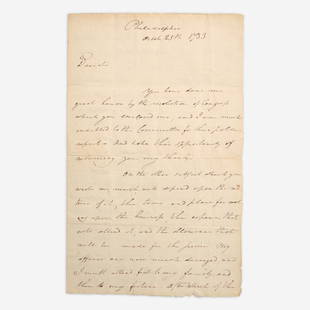 Philadelphia
Octob. 25th 1783
Dear Sir
You have done me
great honor by the resolution of Congress
which you enclosed me, and I am much
indebted to the Committee for their polite
report & And take this opportunity of
returning you my thanks.
On the other subject about you
wrote me, much will depend upon the
time of it, the town and place for
upon the Success the expence that
will attend it, and the allowance that
will be made for the same My
affairs are now much deranged and
I must attend first to my family, and
then to my future